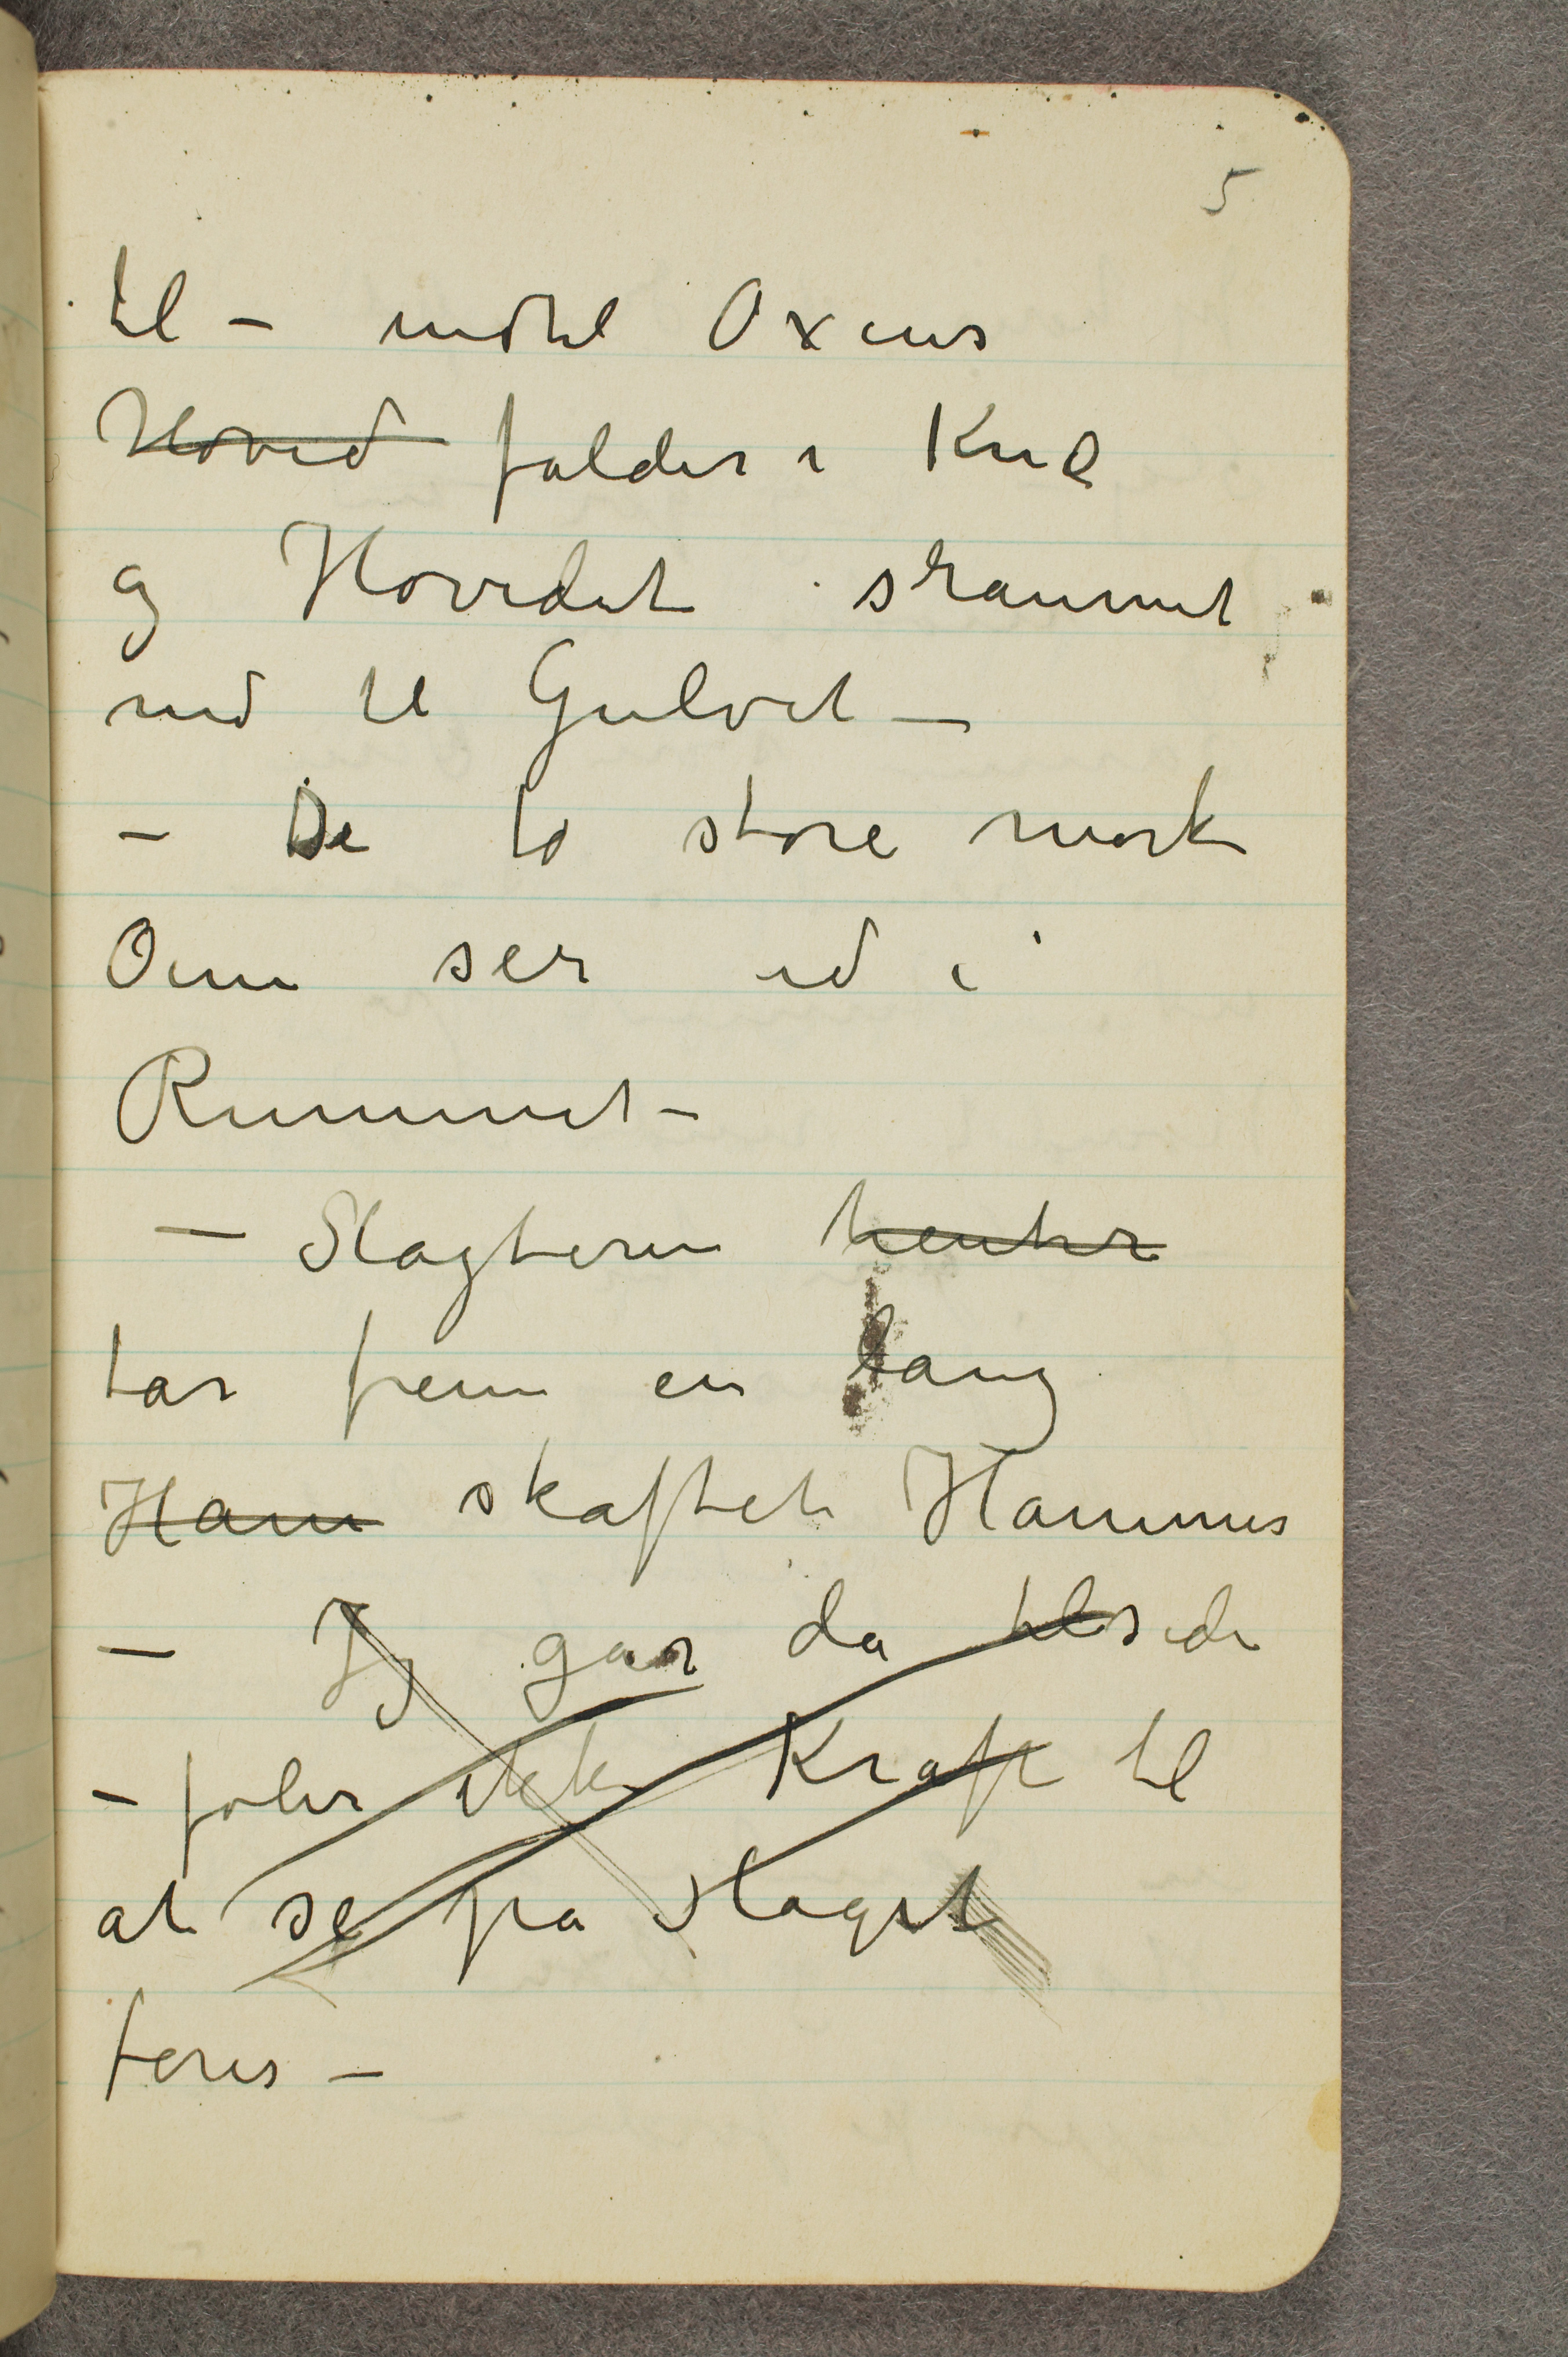 5
til – indtil Oxens
Hoved falder i Knæ
og Hovedet strammet
ned til Gulvet –
– De to store mørke
Øine ser ud i
Rummet –
– Slagteren henter
tar frem en lang
Ham skaftet Hammer
– Jeg gaar da tilside
– føler ikke Kraft til
at se på slaget
føres –